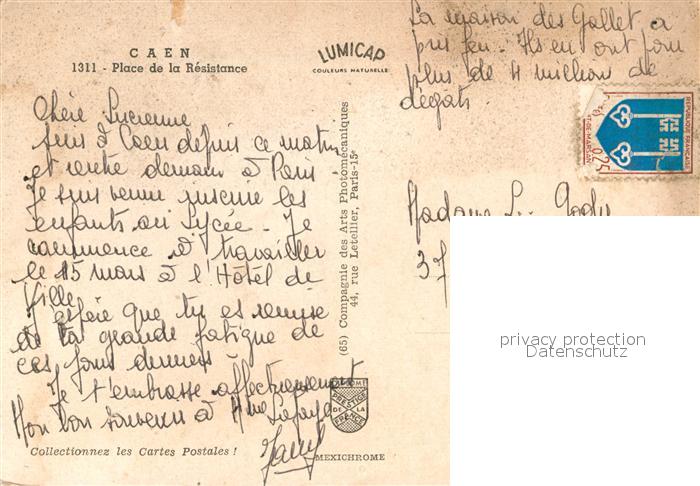 CAEN
1311 - Place de la Résistance
LUMICAP
COULEURS NATURELLES
La maison des Gallet a
pris feu. Ils en ont pour
plus de 4 millions de
dégats
Chère Lucienne
suis à Caen depuis ce matin
et rentre demain à Paris
Je suis venue inscrire les
enfants au Lycée. Je
commence à travailler
le 15 mars à l'Hôtel de
Ville
J'espère que tu es remise
de la grande fatigue de
ces jours derniers
Je t'embrasse affectueusement
Mon bon souvenir à Mme
Collectionnez les Cartes Postales !
(65) Compagnie des Arts Photomécaniques
44, rue Letellier, Paris-15e
PRESTIGE
DE LA
FRANCE
MEXICHROME
REPUBLIQUE FRANCAISE
MT-DE-MARSAN
0,25
Madame L.
37
privacy protection
Datenschutz